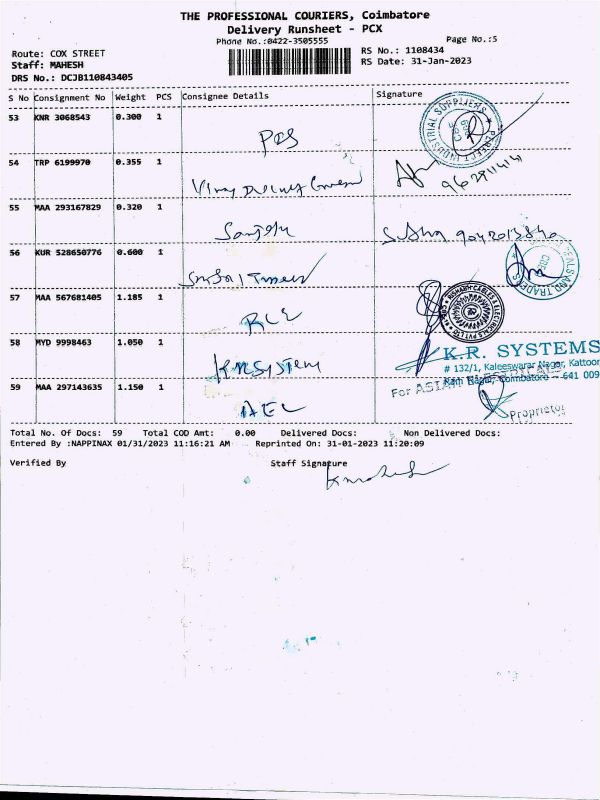 THE PROFESSIONAL COURIERS, Coimbatore
Delivery Runsheet - PCX
Phone No.:0422-3505555
Page No.:5
Route: COX STREET
RS No.: 1108434
Staff: MAHESH
RS Date: 31-Jan-2023
DRS No.: DCJB110843405
S No Consignment No Weight PCS Consignee Details Signature
53 KNR 3068543 0.300 1
PERFECT INDUSTRIAL SUPPLIERS
PIS
54 TRP 6199970 0.355 1
55 MAA 293167829 0.320 1
56 KUR 528650776 0.600 1
TRADERS
57 MAA 567681405 1.185 1
RCE
58 MYD 9998463 1.050 1
KR System
K.R. SYSTEMS
# 132/1, Kaleeswarar Nagar, Kattoor
Ram Nagar, Coimbatore - 641 009
59 MAA 297143635 1.150 1
AEC
For ASIAN
Proprietor
Total No. Of Docs: 59 Total COD Amt: 0.00 Delivered Docs: Non Delivered Docs:
Entered By :NAPPINAX 01/31/2023 11:16:21 AM Reprinted On: 31-01-2023 11:20:09
Verified By Staff Signature